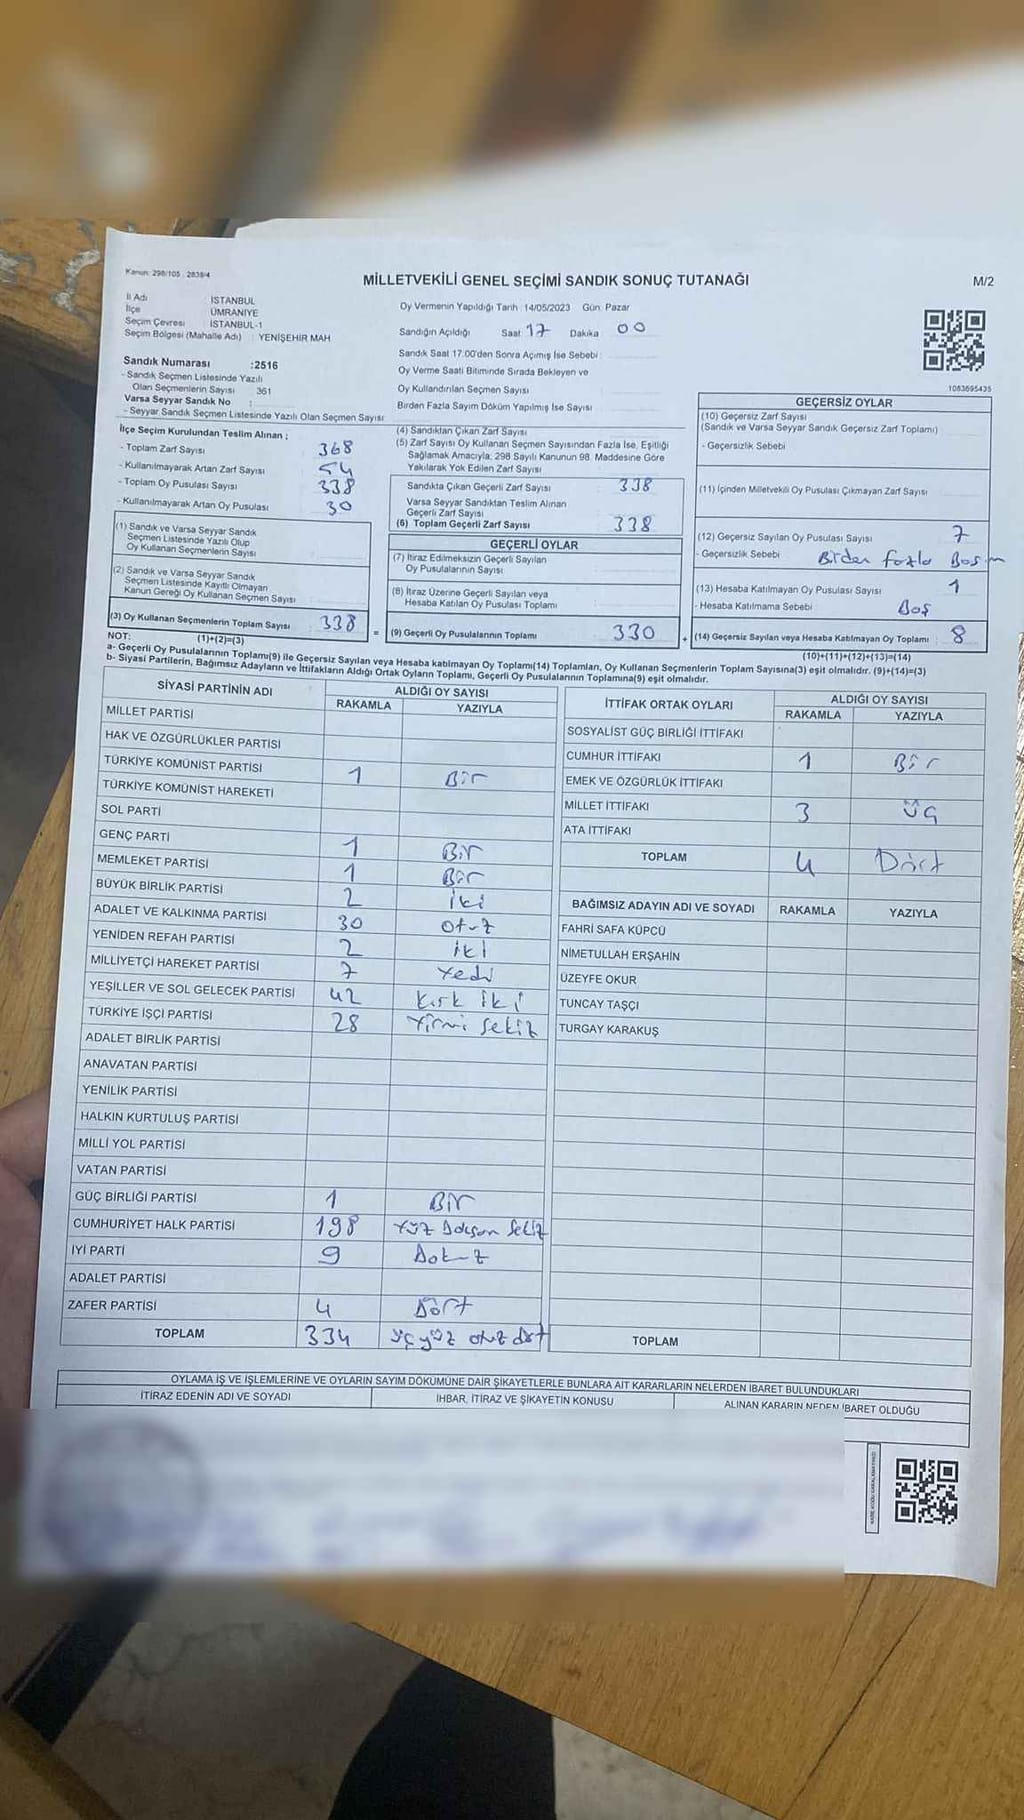 Kanun: 298/105 , 2839/4
MİLLETVEKİLİ GENEL SEÇİMİ SANDIK SONUÇ TUTANAĞI
M/2
İl Adı İSTANBUL
İlçe ÜMRANİYE
Seçim Çevresi İSTANBUL-1
Seçim Bölgesi (Mahalle Adı) : YENİŞEHİR MAH
Sandık Numarası :2516
- Sandık Seçmen Listesinde Yazılı
Olan Seçmenlerin Sayısı 361
Varsa Seyyar Sandık No :
- Seyyar Sandık Seçmen Listesinde Yazılı Olan Seçmen Sayısı
Oy Vermenin Yapıldığı Tarih 14/05/2023 Gün: Pazar
Sandığın Açıldığı Saat 17 Dakika 00
Sandık Saat 17.00'den Sonra Açımış İse Sebebi :
Oy Verme Saati Bitiminde Sırada Bekleyen ve
Oy Kullandırılan Seçmen Sayısı
Birden Fazla Sayım Döküm Yapılmış İse Sayısı
1083695435
İlçe Seçim Kurulundan Teslim Alınan ;
- Toplam Zarf Sayısı 368
- Kullanılmayarak Artan Zarf Sayısı 54
- Toplam Oy Pusulası Sayısı 338
- Kullanılmayarak Artan Oy Pusulası 30
(1) Sandık ve Varsa Seyyar Sandık
Seçmen Listesinde Yazılı Olup
Oy Kullanan Seçmenlerin Sayısı
(2) Sandık ve Varsa Seyyar Sandık
Seçmen Listesinde Kayıtlı Olmayan
Kanun Gereği Oy Kullanan Seçmen Sayısı
(3) Oy Kullanan Seçmenlerin Toplam Sayısı 338
(4) Sandıktan Çıkan Zarf Sayısı
(5) Zarf Sayısı Oy Kullanan Seçmen Sayısından Fazla İse, Eşitliği
Sağlamak Amacıyla; 298 Sayılı Kanunun 98. Maddesine Göre
Yakılarak Yok Edilen Zarf Sayısı
Sandıkta Çıkan Geçerli Zarf Sayısı 338
Varsa Seyyar Sandıktan Teslim Alınan
Geçerli Zarf Sayısı
(6) Toplam Geçerli Zarf Sayısı 338
GEÇERLİ OYLAR
(7) İtiraz Edilmeksizin Geçerli Sayılan
Oy Pusulalarının Sayısı
(8) İtiraz Üzerine Geçerli Sayılan veya
Hesaba Katılan Oy Pusulası Toplamı
= (9) Geçerli Oy Pusulalarının Toplamı 330
GEÇERSİZ OYLAR
(10) Geçersiz Zarf Sayısı
(Sandık ve Varsa Seyyar Sandık Geçersiz Zarf Toplamı)
- Geçersizlik Sebebi
(11) İçinden Milletvekili Oy Pusulası Çıkmayan Zarf Sayısı
(12) Geçersiz Sayılan Oy Pusulası Sayısı 7
- Geçersizlik Sebebi Birden fazla Basım
(13) Hesaba Katılmayan Oy Pusulası Sayısı 1
- Hesaba Katılmama Sebebi Boş
+ (14) Geçersiz Sayılan veya Hesaba Katılmayan Oy Toplamı : 8
NOT: (1)+(2)=(3)
(10)+(11)+(12)+(13)=(14)
a- Geçerli Oy Pusulalarının Toplamı(9) ile Geçersiz Sayılan veya Hesaba katılmayan Oy Toplamı(14) Toplamları, Oy Kullanan Seçmenlerin Toplam Sayısına(3) eşit olmalıdır. (9)+(14)=(3)
b- Siyasi Partilerin, Bağımsız Adayların ve İttifakların Aldığı Ortak Oyların Toplamı, Geçerli Oy Pusulalarının Toplamına(9) eşit olmalıdır.
SİYASİ PARTİNİN ADI ALDIĞI OY SAYISI
RAKAMLA YAZIYLA
MİLLET PARTİSİ
HAK VE ÖZGÜRLÜKLER PARTİSİ
TÜRKİYE KOMÜNİST PARTİSİ 1 Bir
TÜRKİYE KOMÜNİST HAREKETİ
SOL PARTİ
GENÇ PARTİ 1 Bir
MEMLEKET PARTİSİ 1 Bir
BÜYÜK BİRLİK PARTİSİ 2 iki
ADALET VE KALKINMA PARTİSİ 30 otuz
YENİDEN REFAH PARTİSİ 2 iki
MİLLİYETÇİ HAREKET PARTİSİ 7 Yedi
YEŞİLLER VE SOL GELECEK PARTİSİ 42 Kırk iki
TÜRKİYE İŞÇİ PARTİSİ 28 Yirmi sekiz
ADALET BİRLİK PARTİSİ
ANAVATAN PARTİSİ
YENİLİK PARTİSİ
HALKIN KURTULUŞ PARTİSİ
MİLLİ YOL PARTİSİ
VATAN PARTİSİ
GÜÇ BİRLİĞİ PARTİSİ 1 Bir
CUMHURİYET HALK PARTİSİ 198 Yüz Doksan Sekiz
İYİ PARTİ 9 Dokuz
ADALET PARTİSİ
ZAFER PARTİSİ 4 Dört
TOPLAM 334 üçyüz otuz dört
İTTİFAK ORTAK OYLARI ALDIĞI OY SAYISI
RAKAMLA YAZIYLA
SOSYALİST GÜÇ BİRLİĞİ İTTİFAKI
CUMHUR İTTİFAKI 1 Bir
EMEK VE ÖZGÜRLÜK İTTİFAKI
MİLLET İTTİFAKI 3 üç
ATA İTTİFAKI
TOPLAM 4 Dört
BAĞIMSIZ ADAYIN ADI VE SOYADI RAKAMLA YAZIYLA
FAHRİ SAFA KÜPCÜ
NİMETULLAH ERŞAHİN
ÜZEYFE OKUR
TUNCAY TAŞÇI
TURGAY KARAKUŞ
TOPLAM
OYLAMA İŞ VE İŞLEMLERİNE VE OYLARIN SAYIM DÖKÜMÜNE DAİR ŞİKAYETLERLE BUNLARA AİT KARARLARIN NELERDEN İBARET BULUNDUKLARI
İTİRAZ EDENİN ADI VE SOYADI İHBAR, İTİRAZ VE ŞİKAYETİN KONUSU ALINAN KARARIN NEDEN İBARET OLDUĞU